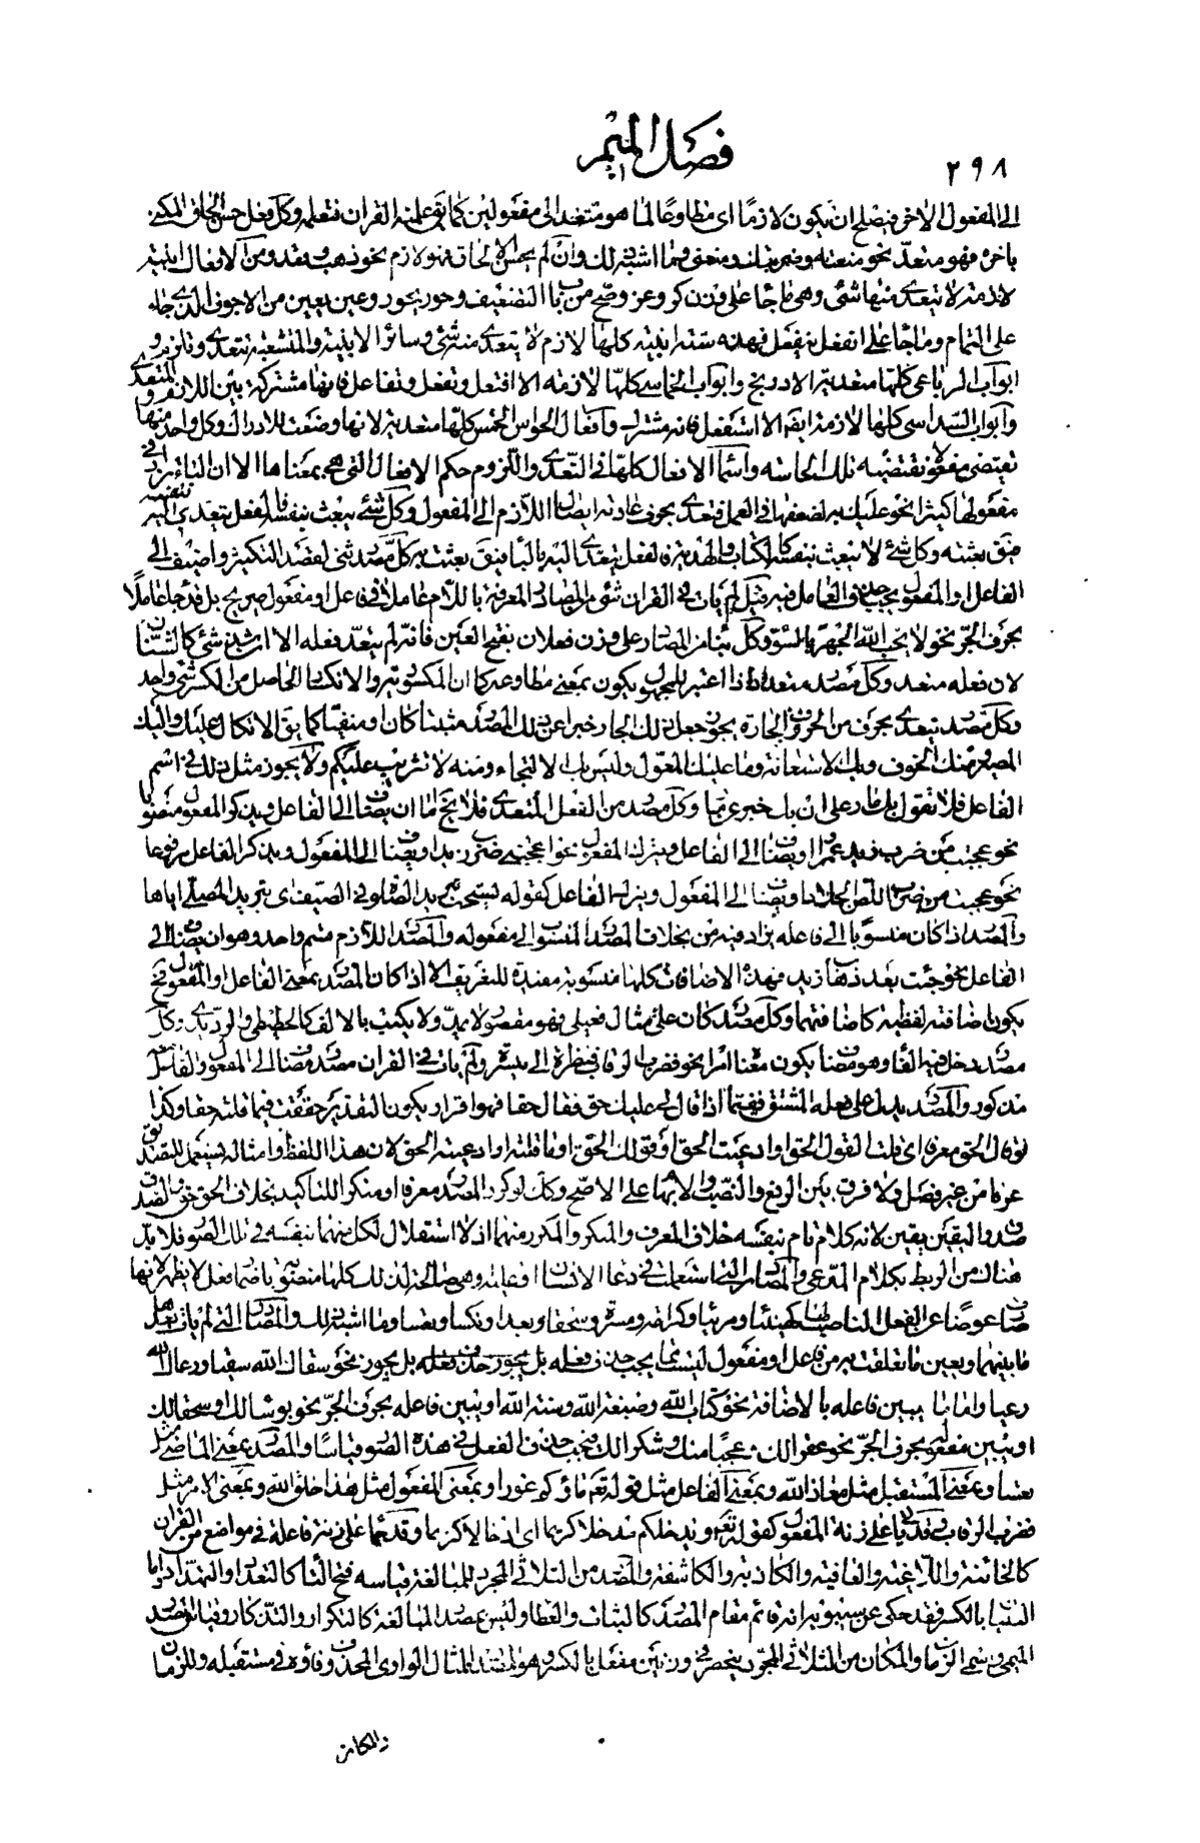 فصل الميم
٢٩٨
الى المفعول الآخر فيصلح ان يكون لازما اى مطاوعا لما هو متعد الى مفعولين كما يق علمته القران فتعلمه وكل فعل حسن الحاق المكنى
باخره فهو متعد نحو منعته وضربته ومنعنى وما اشبه ذلك وان لم يحسن الالحاق فهو لازم نحو ذهب وقعد ومن الافعال ابنية
لازمة لا يتعدى منها شئ وهى ما جا على وزن كرم وعز وصح من باب التضعيف وحور يحور وعين يعين من الاجوف الذى جاء
على التمام وما جا على انفعل ينفعل فهذه ستة ابنية كلها لازم لا يتعدى منه شئ وسائر الابنية المتشعبة تتعدى وتلزم و
ابواب الرباعى كلها متعدية الا دربخ وابواب الخماسى كلها لازمة الا افتعل وتفعل وتفاعل فانها مشتركة بين اللازم والمتعدى
وابواب السداسى كلها لازمة ايضا الا استفعل فانه مشترك وافعال الحواس الخمس كلها متعدية لانها وضعت للادراك وكل واحد منها
تقتضى مفعولا تقتضيه تلك الحاسة واسما الافعال كلها فى التعدى واللزوم حكم الافعال التى هى بمعناها الا ان الباء تزاد فى
مفعولها كثيرا نحو عليك به لضعفها فى العمل فتعدى بحرف عادته ايصال اللازم الى المفعول وكل شئ ينبعث بنفسه فالفعل يتعدى اليه بنفسه
فيق بعثته وكل شئ لا ينبعث بنفسه كالكتاب والهدية فالفعل يتعدى اليه بالبا فيق بعثت به كل مصدر ثنى لقصد التكثير واضيف الى
الفاعل او المفعول يجب حذف العامل فيه قيل لم يات فى القران شئ من المصادر المعرفة باللام عاملا فى فاعل او مفعول صريح بل قد جا عاملا
بحرف الجر نحو لا يحب الله الجهر بالسوء وكل بنا من المصادر على وزن فعلان بفتح العين فانه لم يتعد فعله الا ان يشذ شئ كالشنان
لان فعله متعد وكل مصدر متعد اذا اعتبر للمجهول يكون بمعنى مطاوعه كما ان المكسورية والانكسار الحاصل من الكسر شئ واحد
وكل مصدر يتعدى بحرف من الحروف الجارة يجوز جعل ذلك الجار خبرا عن ذلك المصدر مثبتا كان او منفيا كما يق الاتكال عليك واليك
المصير ومنك الخوف وبك الاستعانة وما عليك المعول وليس بك الالتجاء ومنه لا تثريب عليكم ولا يجوز مثل ذلك فى اسم
الفاعل فلا تقول بك مار على ان بك خبر عن مار وكل مصدر من الفعل المتعدى فلا يخ اما ان يضاف الى الفاعل ويذكر المفعول منصوبا
نحو عجبت من ضرب زيد عمرا او يضاف الى الفاعل ويترك المفعول نحو اعجبنى ضرب زيد او يضاف الى المفعول ويذكر الفاعل مرفوعا
نحو عجبت من ضرب اللص الجلاد او يضاف الى المفعول ويترك الفاعل كقوله يستحب تبريد الصلوة فى الصيف اى تبريد المصلى اياها
والمصدر اذا كان منسوبا الى فاعله يزاد فيه من بخلاف المصدر المنسوب الى مفعوله والمصدر اللازم قسم واحد وهو ان يضاف الى
الفاعل نحو جئت بعد ذهاب زيد فهذه الاضافات كلها معنوية مفيدة للتعريف الا اذا كان المصدر بمعنى الفاعل والمفعول فح
يكون اضافته لفظية كاضافتهما وكل مصدر كان على مثال فعيلى فهو مقصور لا يمد ولا يكتب بالالف كالخطيطى والرديدى وكل
مصدر دخل فيه الفا وهو مضاف يكون معناه امرا نحو فضرب الرقاب فنظرة الى ميسرة ولم يات فى القران مصدر مضاف الى المفعول والفاعل
مذكور والمصدر يدل على فعله المشتق منه اذا قال لى عليك حق فقال حقا فهو اقرار ويكون التقدير حققت فيما قلته حقا وكذا
لو قال الحق معرفا اى قلت القول الحق او ادعيت الحق او قولك الحق او ما قلته او ادعيته الحق لان هذا اللفظ وامثاله يستعمل للتصديق
عرفا من غير فصل ولا فرق بين الرفع والنصب والابهام على الاصح وكذا لو كرر المصدر معرفا او منكرا للتاكيد بخلاف الحق حق والصدق
صدق واليقين يقين لانه كلام تام بنفسه خلاف المعرف والمنكر والمكرر منهما اذ لا استقلال لكل منهما بنفسه فى تلك الصور فلا بد
هناك من الربط بكلام المدعى والمصادر التى استعملت فى دعا الانسان او عليه وهى صالحة لذلك كلها منصوبة باضمار فعل لا يظهر لانها
صارت عوضا عن الفعل الناصب لها كهنيئا ومريئا وكرامة ومسرة وسحقا وبعدا ونكسا وتعسا وما اشبه ذلك والمصادر التى لم يات بعدها
ما يبينها ويعين ما تعلقت به من فاعل او مفعول ليست مما يجب حذف فعله بل يجوز نحو سقاك الله سقيا ورعاك الله
رعيا واما ما يبين فاعله بالاضافة نحو كتاب الله وصبغة الله وسنة الله او يبين فاعله بحرف الجر نحو بؤسا لك وسحقا لك
او يبين مفعوله بحرف الجر نحو عقرا لك وعجبا منك وشكرا لك فيجب حذف الفعل فى هذه الصور قياسا والمصدر بمعنى الماضى مثل
تعسا وبمعنى المستقبل مثل معاذ الله وبمعنى الفاعل مثل قوله تعم ماؤكم غورا وبمعنى المفعول مثل هذا خلق الله وبمعنى الامر مثل
فضرب الرقاب وقد ياتى على زنة المفعول كقوله تعم وندخلكم مدخلا كريما اى ادخالا كريما وقد جا على زنة فاعلة فى مواضع من القران
كالخائنة واللاغية والعافية والكاذبة والكاشفة والمصدر من الثلاثى المجرد للمبالغة قياسه فتح التا كالتعداد والتهداد واما
التبيان بالكسر فقد حكى عن سيبويه انه قائم مقام المصدر كالنبات والعطا وليس مصدر المبالغة كالتكرار والتذكار وقياس المصدر
الميمى واسمى الزمان والمكان من الثلاثى المجرد ينحصر فى وزنين مفعل بالكسر وهو للمعتد المثال الواوى المحذوف فاؤه فى مستقبله وللزمان
والمكان